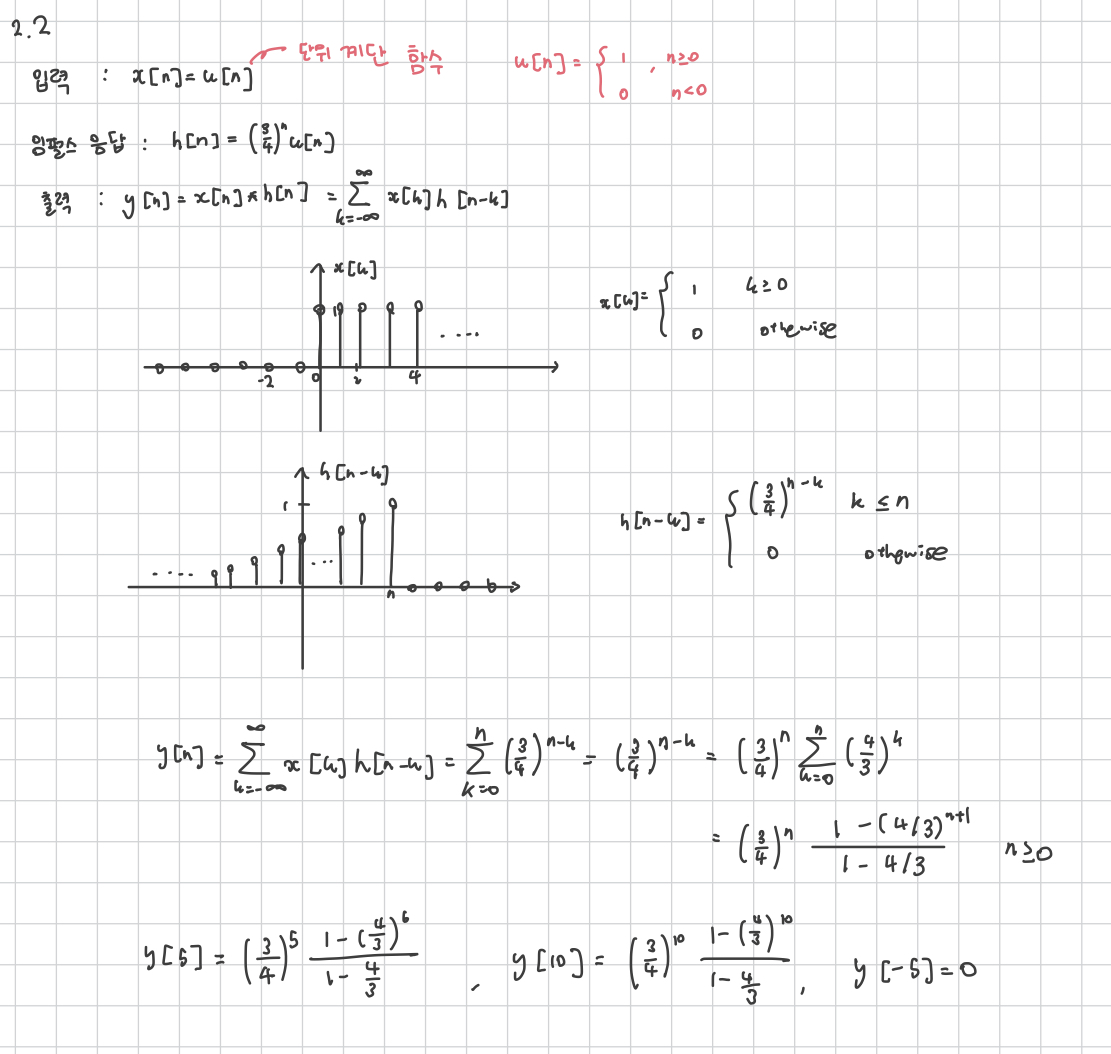 2.2
단위 계단 함수 u[n] = { 1 , n≥0
0 n<0
입력 : x[n] = u[n]
임펄스 응답 : h[n] = (3/4)^n u[n]
출력 : y[n] = x[n] * h[n] = ∑_{k=-∞}^{∞} x[k] h [n-k]
x[k]
x[k] = { 1 k≥0
0 othewise
1
-2 0 2 4 ....
h[n-k]
h[n-k] = { (3/4)^{n-k} k ≤ n
0 othewise
1
.... ... n
y[n] = ∑_{k=-∞}^{∞} x[k] h[n-k] = ∑_{k=0}^{n} (3/4)^{n-k} = (3/4)^{n-k} = (3/4)^n ∑_{k=0}^{n} (4/3)^k
= (3/4)^n (1 - (4/3)^{n+1}) / (1 - 4/3) n≥0
y[5] = (3/4)^5 (1 - (4/3)^6) / (1 - 4/3) , y[10] = (3/4)^10 (1 - (4/3)^10) / (1 - 4/3) , y[-5] = 0